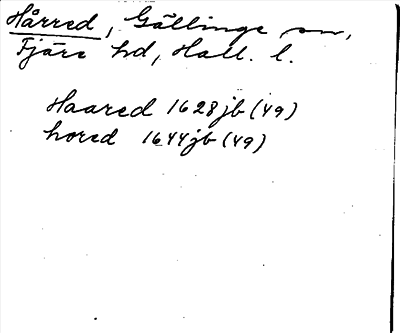 Hårred, Gällinge sn,
Fjäre hd, Hall. l.
Haared 1628 jb (49)
hored 1644 jb (49)